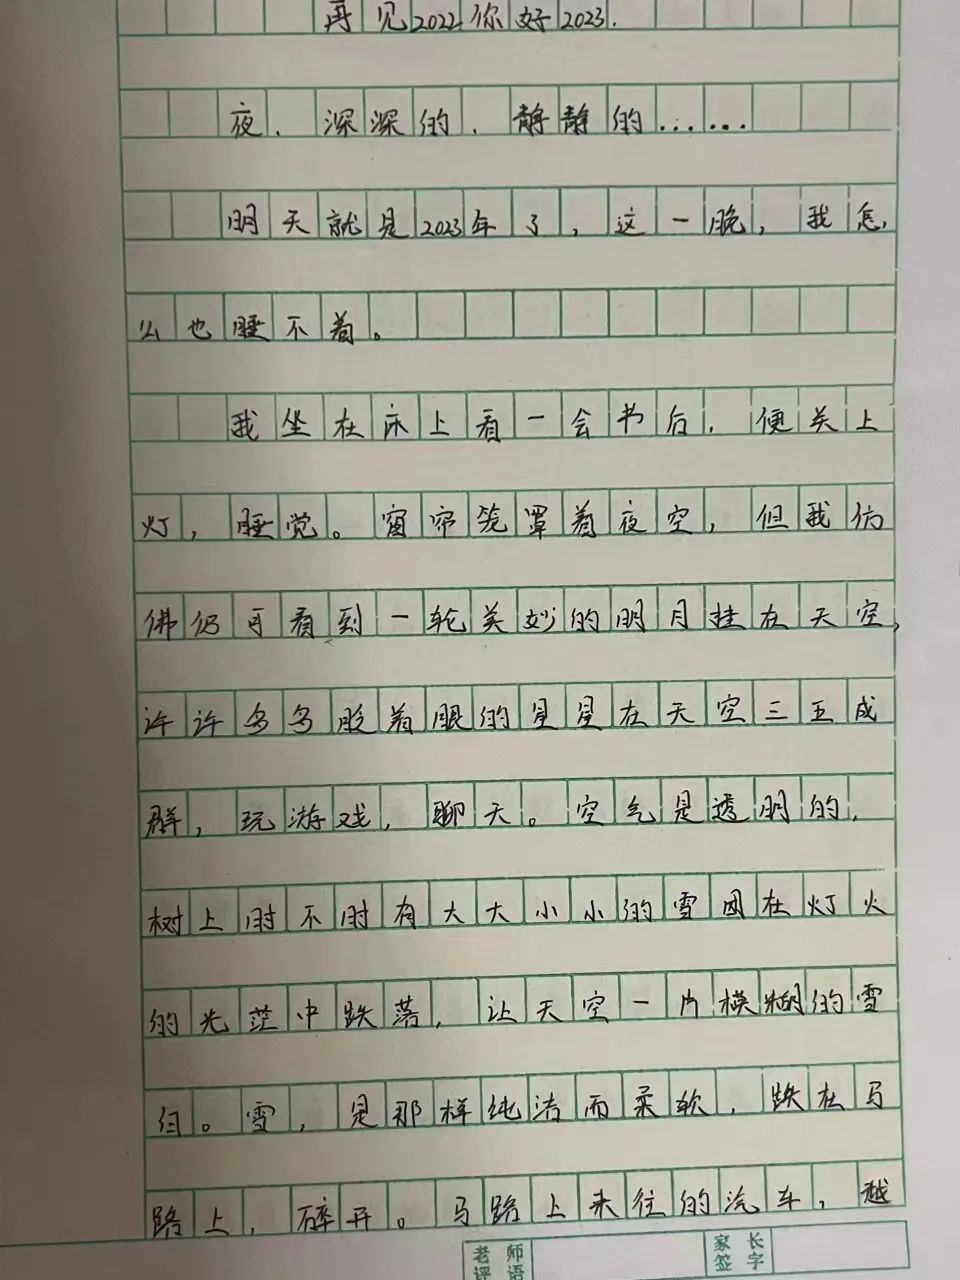 再见2022你好2023.
夜，深深的，静静的……
明天就是2023年了，这一晚，我怎
么也睡不着。
我坐在床上看一会书后，便关上
灯，睡觉。窗帘笼罩着夜空，但我仿
佛仍可看到一轮美妙的明月挂在天空，
许许多多眨着眼的星星在天空三五成
群，玩游戏，聊天。空气是透明的，
树上时不时有大大小小的雪团在灯火
的光茫中跌落，让天空一片模糊的雪
白。雪，是那样纯洁而柔软，跌在马
路上，碎开。马路上来往的汽车，越
老师评语
家长签字